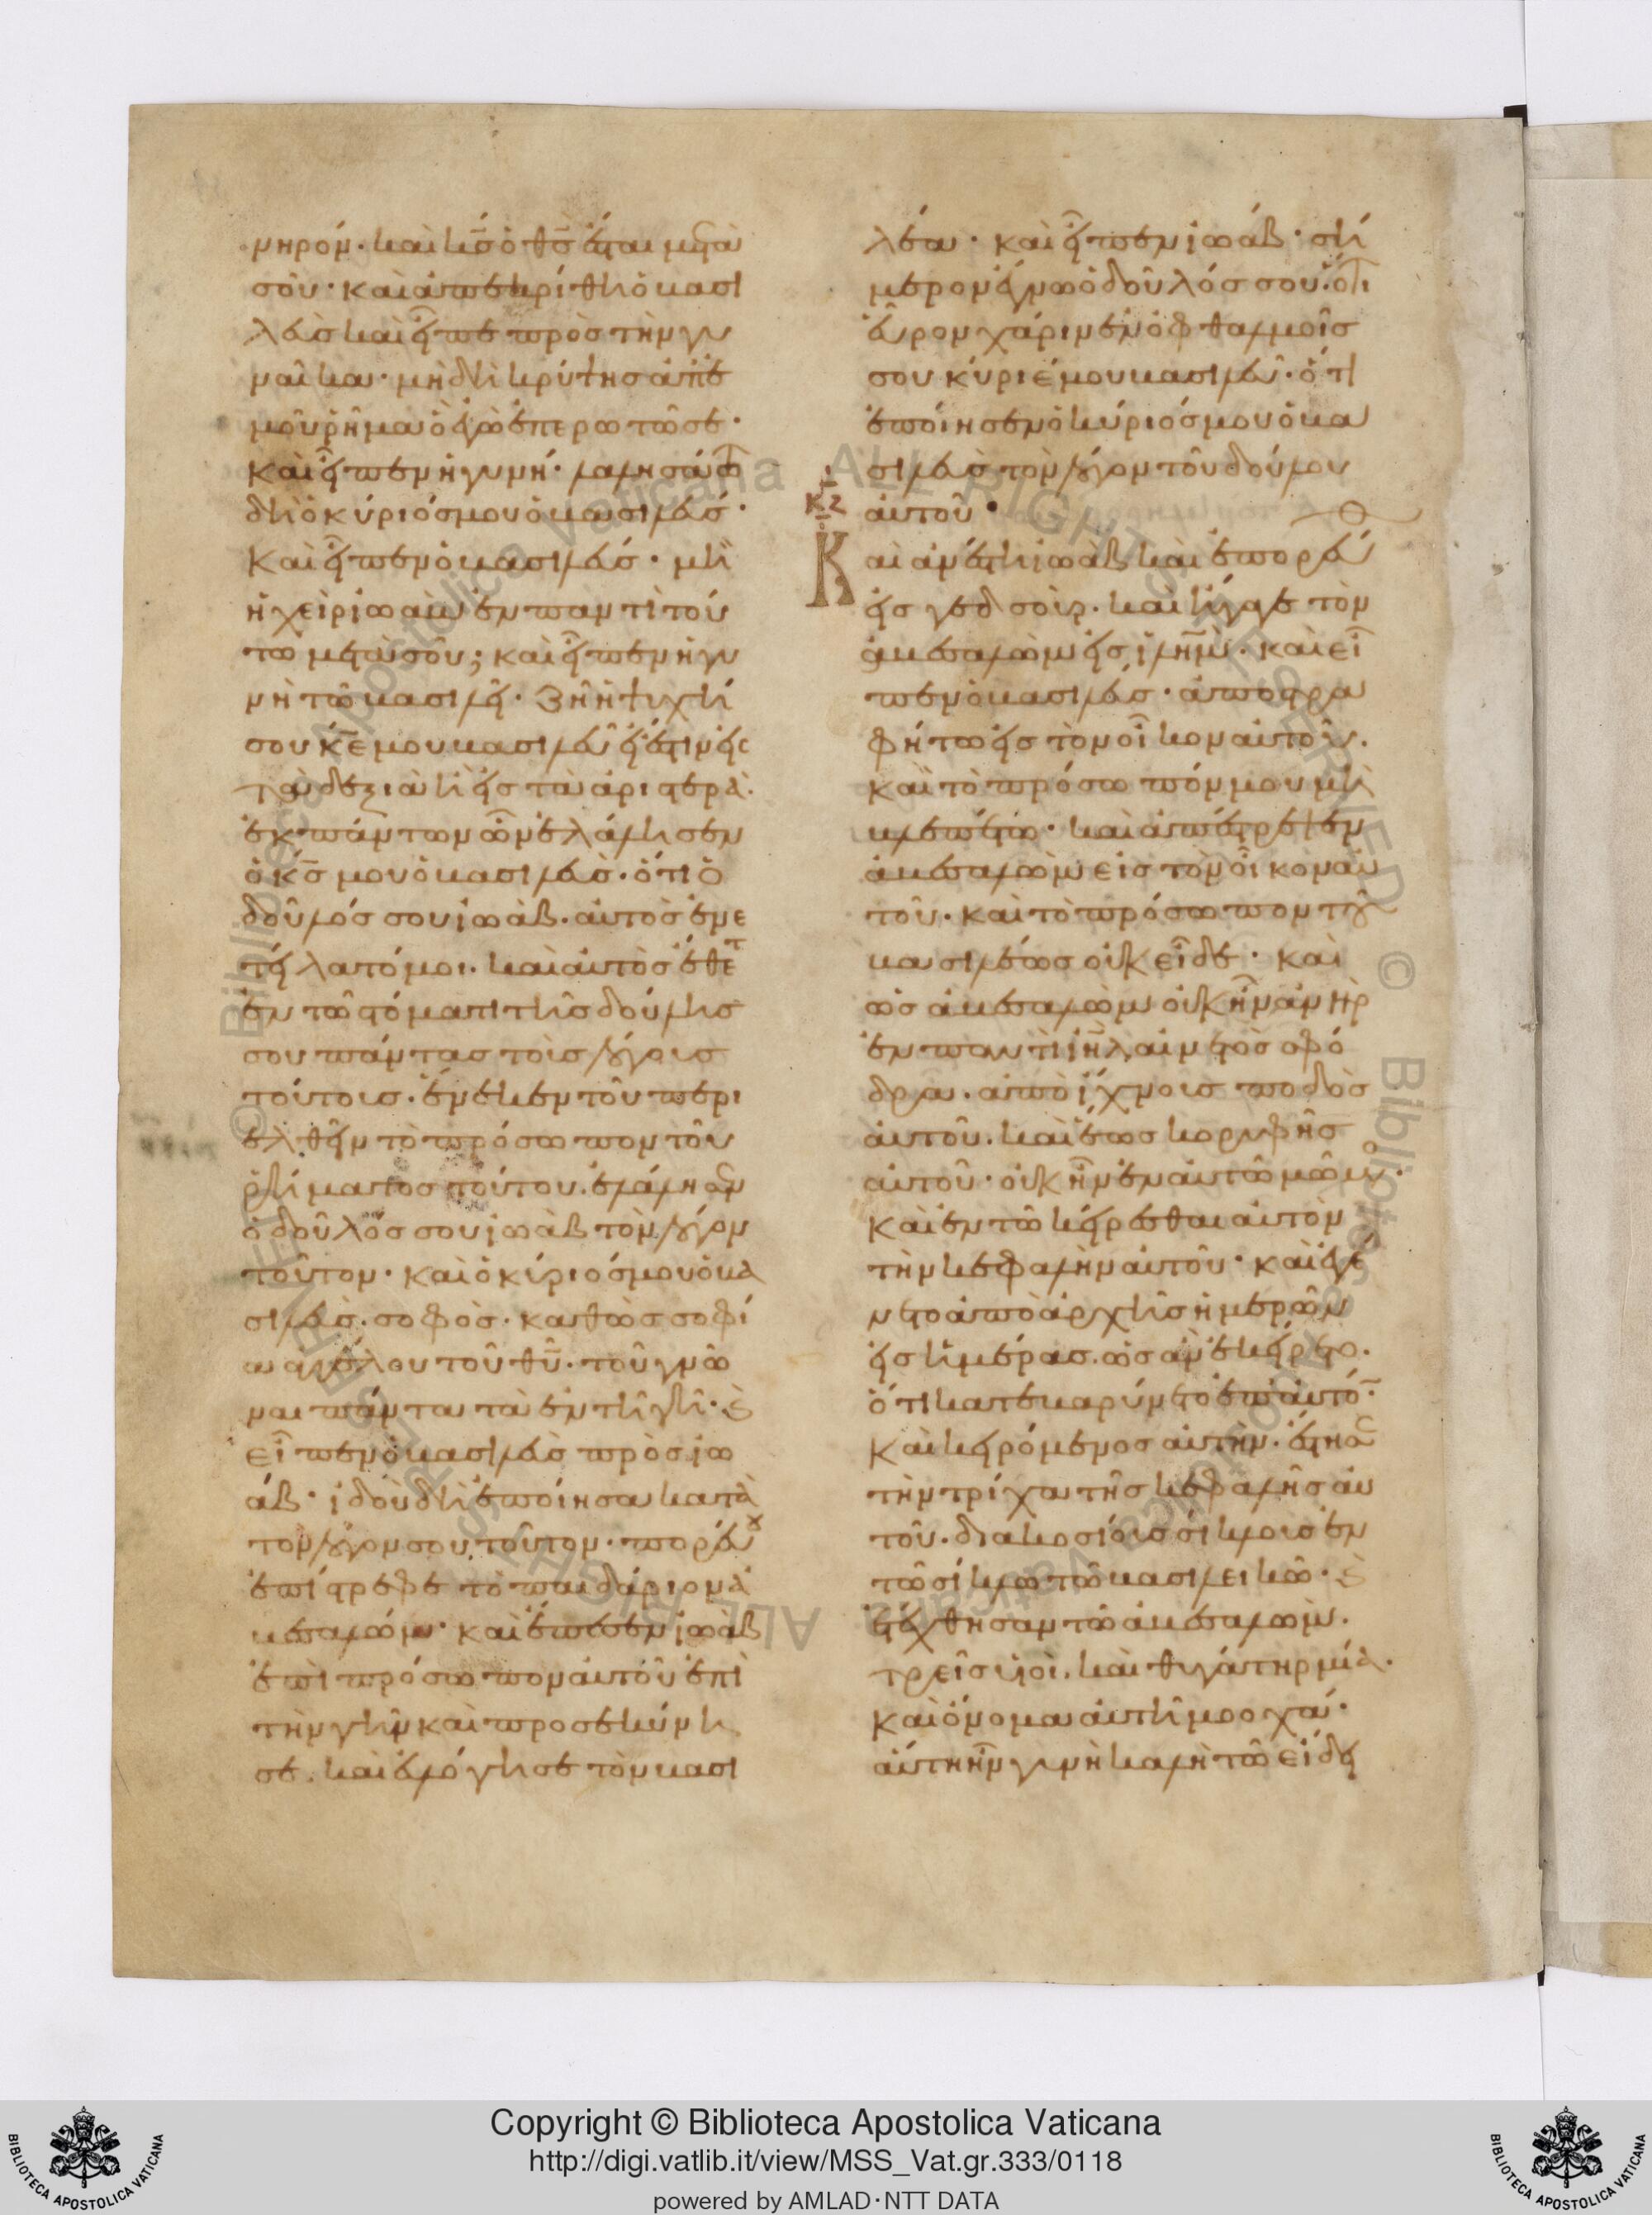 νηρόν· καὶ κ̅ς̅ ὁ θ̅ς̅ ἔσται μετὰ
σοῦ· καὶ ἀπεκρίθη ὁ βασι
λεὺς καὶ εἶπε πρὸς τὴν γυ
ναῖκα· μὴ δὴ κρύψης ἀπ' ἐ
μοῦ ῥῆμα ὃ ἐγὼ ἐπερωτῶ σε·
καὶ εἶπεν ἡ γυνή· λαλησάτω
δὴ ὁ κύριός μου ὁ βασιλεύς·
καὶ εἶπεν ὁ βασιλεύς· μὴ
ἡ χεὶρ ἰωὰβ ἐν παντὶ τού
τω μετὰ σοῦ; καὶ εἶπεν ἡ γυ
νὴ τῶ βασιλεῖ· ζῆ ἡ ψυχή
σου κ̅ε̅ μου βασιλεῦ εἰ ἔστιν εἰς
τὰ δεξιὰ ἢ εἰς τὰ ἀριστερὰ·
ἐκ πάντων ὧν ἐλάλησεν
ὁ κ̅ς̅ μου ὁ βασιλεὺς· ὅτι ὁ
δοῦλός σου ἰωάβ· αὐτὸς ἐνε
τείλατό μοι· καὶ αὐτὸς ἔθετ
ἐν τῶ στόματι τῆς δούλης
σου πάντας τοὺς λόγους
τούτους· ἕνεκεν τοῦ περι
ελθεῖν τὸ πρόσωπον τοῦ
ῥήματος τούτου· ἐλάλησεν
ὁ δοῦλός σου ἰωὰβ τὸν λόγον
τοῦτον· καὶ ὁ κύριός μου ὁ βα
σιλεὺς· σοφὸς· καθὼς σοφί
α ἀγγέλου τοῦ θ̅υ̅· τοῦ γνῶ
ναι πάντα τὰ ἐν τῆ γῆ· ϗ
εἶπεν ὁ βασιλεὺς πρὸς ἰω
άβ· ἰδοὺ δὴ ἐποίησα κατὰ
τὸν λόγον σου τοῦτον· πορεύου
ἐπίστρεψε τὸ παιδάριον ἀ
βεσαλώμ· καὶ ἔπεσεν ἰωὰβ
ἐπὶ πρόσωπον αὐτοῦ ἐπὶ
τὴν γῆν καὶ προσεκύνη
σε· καὶ εὐλόγησε τὸν βασι
λέα· καὶ εἶπεν ἰωάβ· σή
μερον ἔγνω ὁ δοῦλός σου· ὅτι
εὗρον χάριν ἐν ὀφθαλμοῖς
σου κύριέ μου βασιλεῦ· ὅτι
ἐποίησεν ὁ κύριός μου ὁ βα
σιλεὺς τὸν λόγον τοῦ δούλου
αὐτοῦ·
κζ
Καὶ ἀνέστη ἰωὰβ καὶ ἐπορεύ
εἰς γεδσούρ· καὶ ἤγαγε τὸν
ἀβεσαλὼμ εἰς ἱλη̅μ̅· καὶ εἶ
πεν ὁ βασιλεύς· ἀποστρα
φήτω εἰς τὸν οἶκον αὐτοῦ·
καὶ τὸ πρόσωπόν μου μὴ
βλεπέτω· καὶ ἀπέστρεψεν
ἀβεσαλὼμ εἰς τὸν οἶκον αὐ
τοῦ· καὶ τὸ πρόσωπον τοῦ
βασιλέως οὐκ εἶδε· καὶ
ὡς ἀβεσαλὼμ οὐκ ἦν ἀνὴρ
ἐν παντὶ ἰη̅λ̅ αἰνετὸς σφό
δρα· ἀπὸ ἴχνους ποδὸς
αὐτοῦ· καὶ ἕως κορυφῆς
αὐτοῦ· οὐκ ἦν ἐν αὐτῶ μῶμο·
καὶ ἐν τῶ κείρεσθαι αὐτὸν
τὴν κεφαλὴν αὐτοῦ· καὶ ἐγέ
νετο ἀπὸ ἀρχῆς ἡμερῶν
εἰς ἡμέρας· ὡς ἂν ἐκείρετο·
ὅτι κατεβαρύνετο ἐπ' αὐτό̅·
καὶ κειρόμενος αὐτὴν· ἔστησε
τὴν τρίχα τῆς κεφαλῆς αὐ
τοῦ· διακοσίους σίκλους ἐν
τῶ σίκλω τῶ βασιλεικῶ· ϗ
ἐτέχθησαν τῶ ἀβεσαλὼμ·
τρεῖς υἱοὶ· καὶ θυγάτηρ μία·
καὶ ὄνομα αὐτῆ μοοχά·
αὕτη ἦν γυνὴ καλὴ τῶ εἴδει
Copyright © Biblioteca Apostolica Vaticana
http://digi.vatlib.it/view/MSS_Vat.gr.333/0118
powered by AMLAD·NTT DATA
BIBLIOTECA APOSTOLICA VATICANA
BIBLIOTECA APOSTOLICA VATICANA